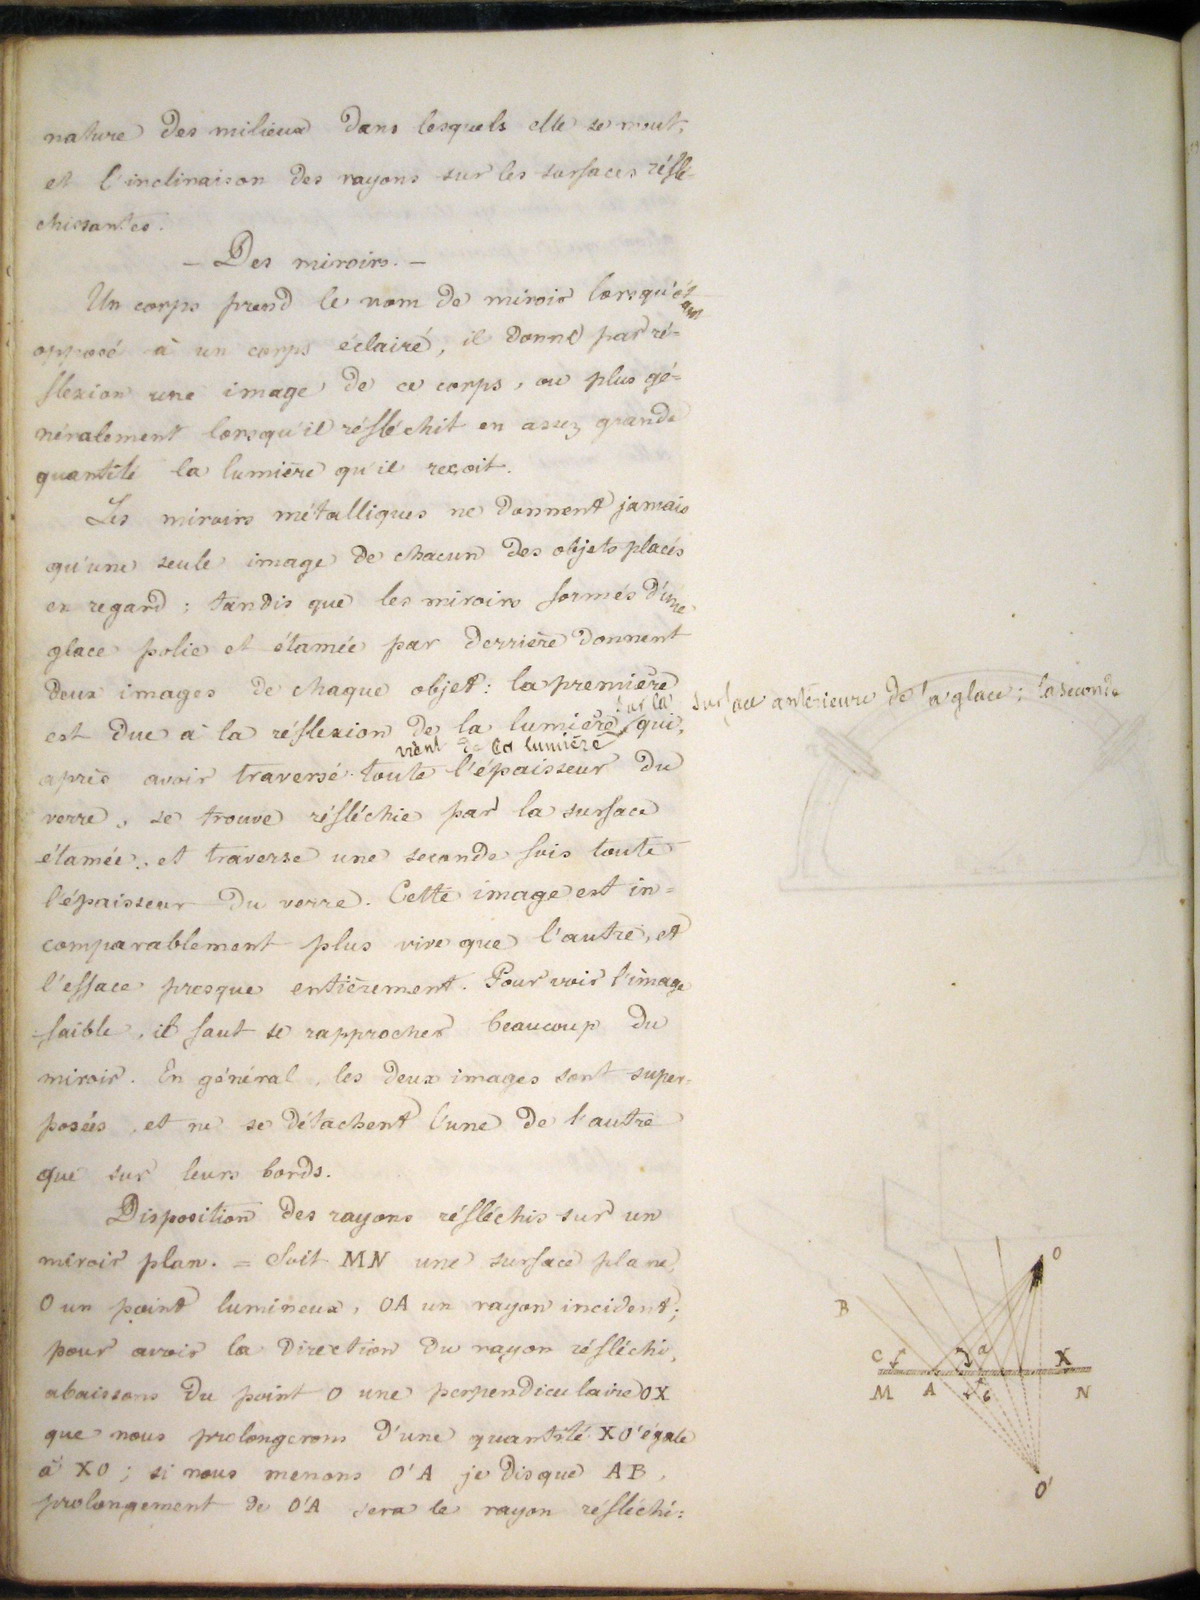 nature des milieux dans lesquels elle se meut,
et l'inclinaison des rayons sur les surfaces réflé-
chissantes.
— Des miroirs. —
Un corps prend le nom de miroir lorsqu'étant
opposé à un corps éclairé, il donne par ré-
flexion une image de ce corps, ou plus gé-
néralement lorsqu'il réfléchit en assez grande
quantité la lumière qu'il reçoit.
Les miroirs métalliques ne donnent jamais
qu'une seule image de chacun des objets placés
en regard; tandis que les miroirs formés d'une
glace polie et étamée par derrière donnent
deux images de chaque objet: la première
sur la surface antérieure de la glace; la seconde
est due à la réflexion de la lumière, qui,
vient de la lumière
après avoir traversé toute l'épaisseur du
verre, se trouve réfléchie par la surface
étamée, et traverse une seconde fois toute
l'épaisseur du verre. Cette image est in-
comparablement plus vive que l'autre, et
l'efface presque entièrement. Pour voir l'image
faible, il faut se rapprocher beaucoup du
miroir. En général, les deux images sont super-
posées, et ne se détachent l'une de l'autre
que sur leurs bords.
Disposition des rayons réfléchis sur un
miroir plan. = Soit MN une surface plane,
O un point lumineux, OA un rayon incident;
pour avoir la direction du rayon réfléchi,
abaissons du point O une perpendiculaire OX
que nous prolongerons d'une quantité XO' égale
à XO; si nous menons O'A je dis que AB,
prolongement de O'A sera le rayon réfléchi:
O
B
C
a
X
M
A
b
N
O'